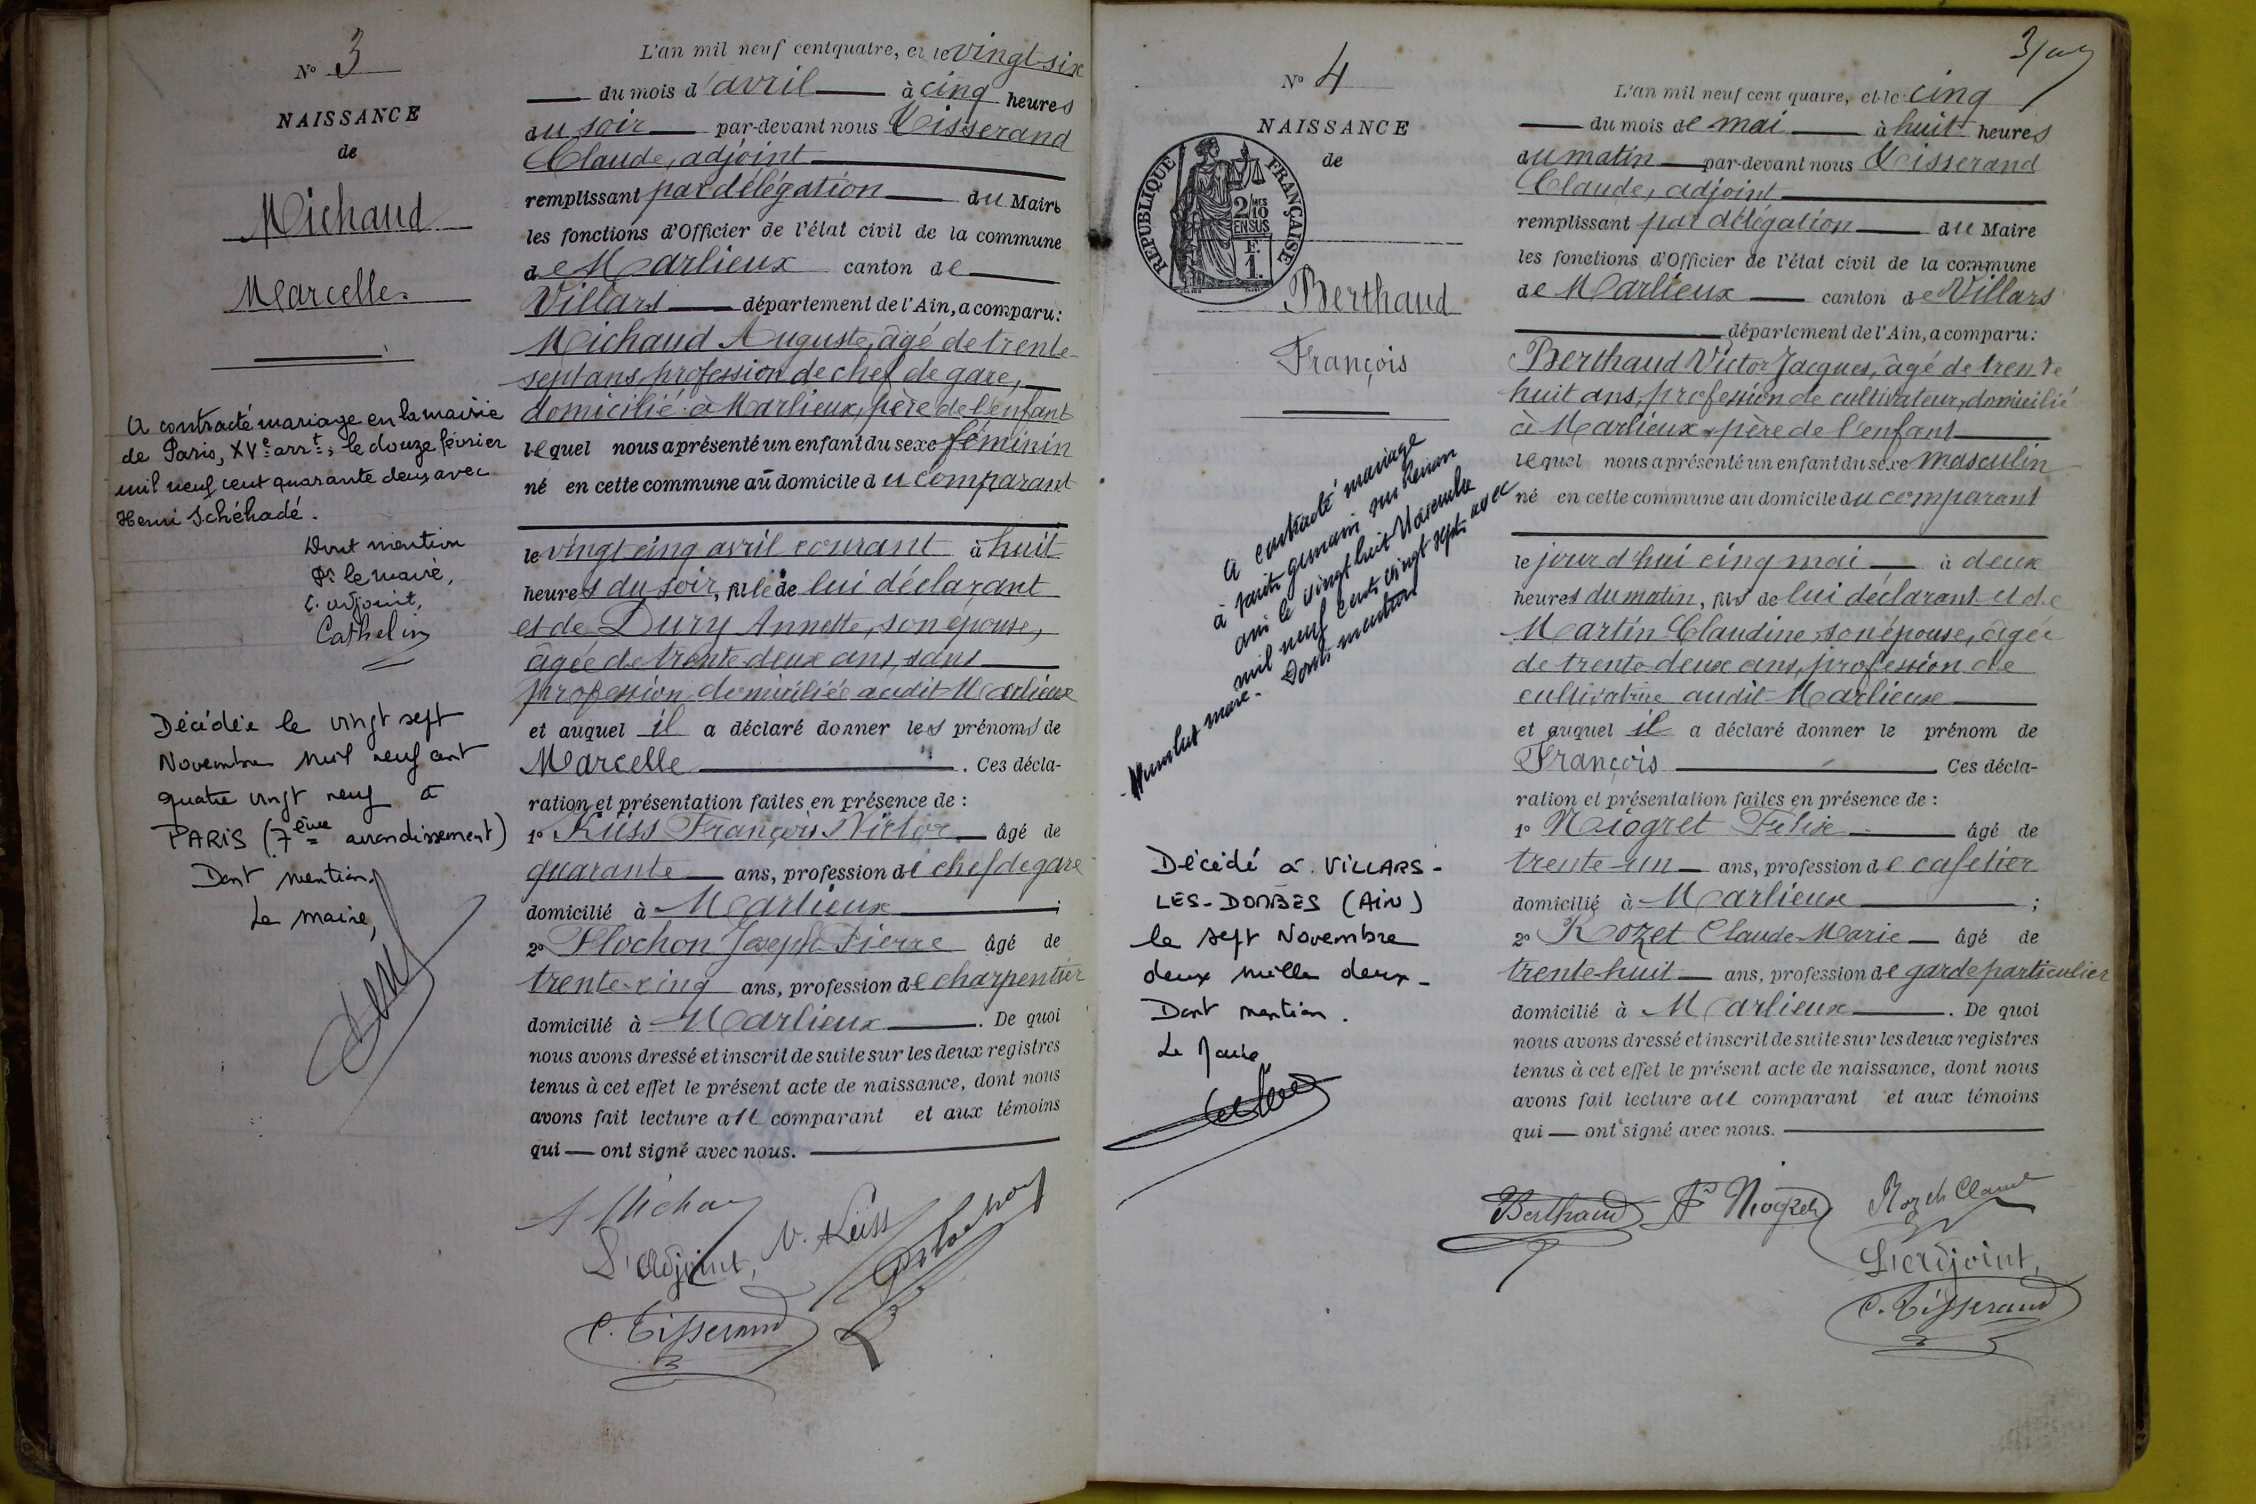 N° 3
NAISSANCE
de
Michaud
Marcelle.
A contracté mariage en la mairie
de Paris, XVe arrt, le douze février
mil neuf cent quarante deux avec
Henri Schéhadé.
Dont mention
Pr le maire,
l'adjoint,
Cathelin
Décédée le vingt sept
Novembre mil neuf cent
quatre vingt neuf à
PARIS (7ème arrondissement)
Dont mention
Le maire,
L'an mil neuf cent quatre, et le vingt-six
du mois d'avril à cinq heures
du soir par-devant nous Tisserand
Claude, adjoint
remplissant par délégation du Maire
les fonctions d'Officier de l'état civil de la commune
de Marlieux canton de
Villars département de l'Ain, a comparu:
Michaud Auguste, âgé de trente-
sept ans, profession de chef de gare,
domicilié à Marlieux, père de l'enfant
lequel nous a présenté un enfant du sexe féminin
né en cette commune au domicile du comparant
le vingt cinq avril courant à huit
heures du soir, fille de lui déclarant
et de Dury Annette, son épouse,
âgée de trente-deux ans, sans
profession domiciliée audit Marlieux
et auquel il a déclaré donner les prénoms de
Marcelle. Ces décla-
ration et présentation faites en présence de :
1° Küss François Victor âgé de
quarante ans, profession de chef de gare
domicilié à Marlieux ;
2° Plochon Joseph Pierre âgé de
trente-cinq ans, profession de charpentier
domicilié à Marlieux. De quoi
nous avons dressé et inscrit de suite sur les deux registres
tenus à cet effet le présent acte de naissance, dont nous
avons fait lecture au comparant et aux témoins
qui ont signé avec nous.
A Michaud
L'adjoint, V. Küss
C. Tisserand
N° 4
NAISSANCE
de
REPUBLIQUE FRANÇAISE
2/10 MES
EN SUS
F.
1.
Berthaud
François
A contracté mariage
à Saint germain sur Renon
ain le vingt huit Novembre
mil neuf cent vingt sept avec
Dont mention
maire.
Décédé à VILLARS-
LES-DOMBES (AiN)
le sept Novembre
deux mille deux-
Dont mention.
Le Maire
L'an mil neuf cent quatre, et le cinq
du mois de mai à huit heures
du matin par-devant nous Tisserand
Claude, adjoint
remplissant par délégation du Maire
les fonctions d'Officier de l'état civil de la commune
de Marlieux canton de Villars
département de l'Ain, a comparu:
Berthaud Victor Jacques, âgé de trente
huit ans, profession de cultivateur, domicilié
à Marlieux, père de l'enfant
lequel nous a présenté un enfant du sexe masculin
né en cette commune au domicile du comparant
le jour d'hui cinq mai à deux
heures du matin, fils de lui déclarant et de
Martin Claudine, son épouse, âgée
de trente-deux ans, profession de
cultivatrice audit Marlieux
et auquel il a déclaré donner le prénom de
François Ces décla-
ration et présentation faites en présence de :
1° Niogret Félix âgé de
trente-un ans, profession de cafetier
domicilié à Marlieux ;
2° Rozet Claude Marie âgé de
trente-huit ans, profession de garde particulier
domicilié à Marlieux. De quoi
nous avons dressé et inscrit de suite sur les deux registres
tenus à cet effet le présent acte de naissance, dont nous
avons fait lecture au comparant et aux témoins
qui ont signé avec nous.
Berthaud Fx Niogret Rozet Claude
L'adjoint,
C. Tisserand